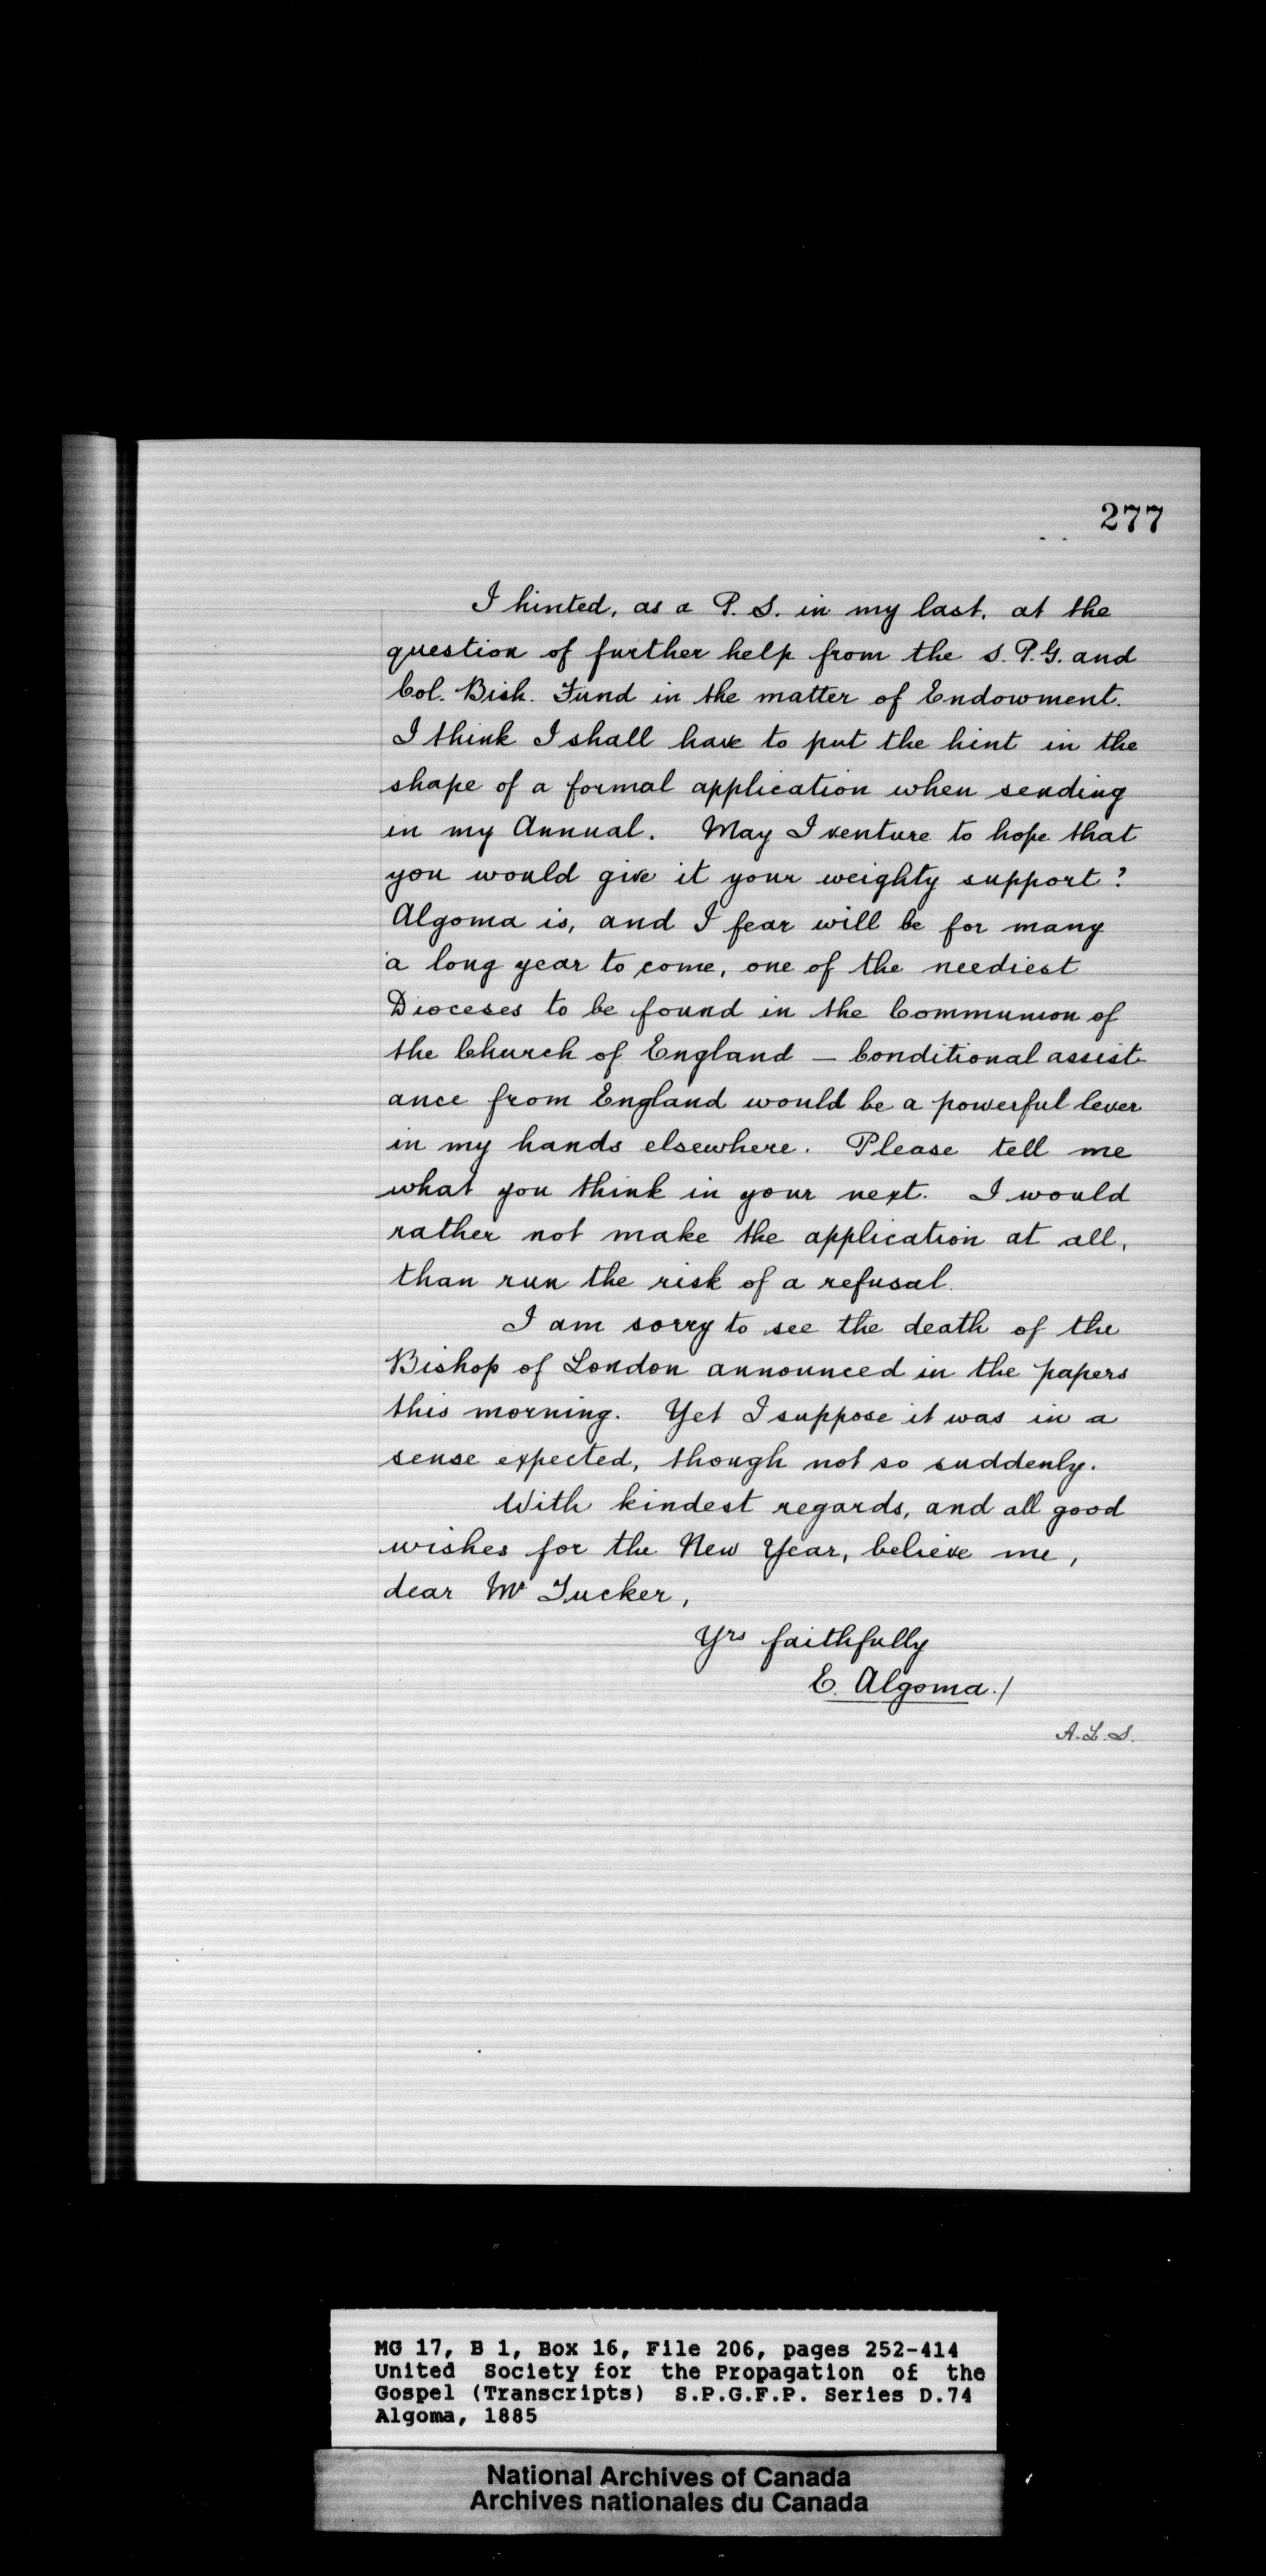 277
I hinted, as a P.S. in my last, at the
question of further help from the S.P.G. and
Col. Bish. Fund in the matter of Endowment.
I think I shall have to put the hint in the
shape of a formal application when sending
in my Annual. May I venture to hope that
you would give it your weighty support?
Algoma is, and I fear will be for many
a long year to come, one of the neediest
Dioceses to be found in the Communion of
the Church of England – Conditional assist-
ance from England would be a powerful lever
in my hands elsewhere. Please tell me
what you think in your next. I would
rather not make the application at all,
than run the risk of a refusal.
I am sorry to see the death of the
Bishop of London announced in the papers
this morning. Yet I suppose it was in a
sense expected, though not so suddenly.
With kindest regards, and all good
wishes for the New Year, believe me,
dear Mr Tucker,
Yrs faithfully
E. Algoma./
A.L.S.
MG 17, B 1, Box 16, File 206, pages 252-414
United Society for the Propagation of the
Gospel (Transcripts) S.P.G.F.P. Series D.74
Algoma, 1885
National Archives of Canada
Archives nationales du Canada